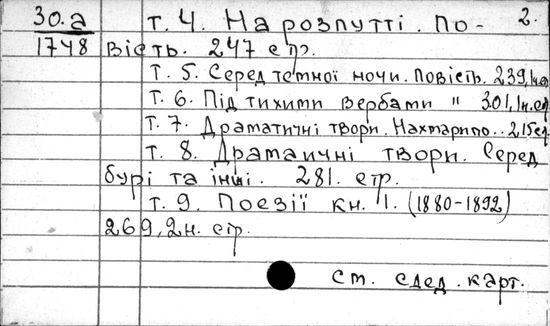 30.а т. 4. На розпутті. По- 2.
1748 вість. 247 стр.
т. 5. Серед темної ночи. Повість. 239, 1н.ст
т. 6. Під тихими вербами " 301, 1н.ст
т. 7. Драматичні твори. Нахмарило.. 215ст.
т. 8. Драмаичні твори. Серед
бурі та інші. 281. стр.
т. 9. Поезії кн. 1. (1880-1892)
269, 2н. стр.
ст. след. карт.